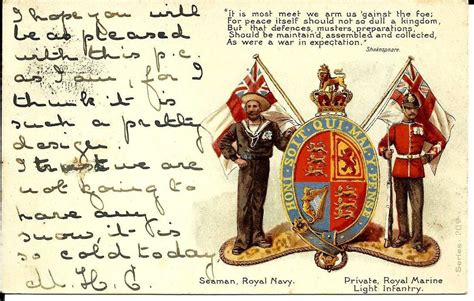 I hope you will
be as pleased
with this p.c.
as I am, for I
think it is
such a pretty
design.
I trust we are
not going to
have any
snow, it is
so cold today
M. H. C.
"It is most meet we arm us 'gainst the foe;
For peace itself should not so dull a kingdom,
But that defences, musters, preparations,
Should be maintain'd, assembled and collected,
As were a war in expectation."
Shakespeare.
HONI · SOIT · QUI · MAL · Y · PENSE
Seaman, Royal Navy.
Private, Royal Marine
Light Infantry.
Series 209